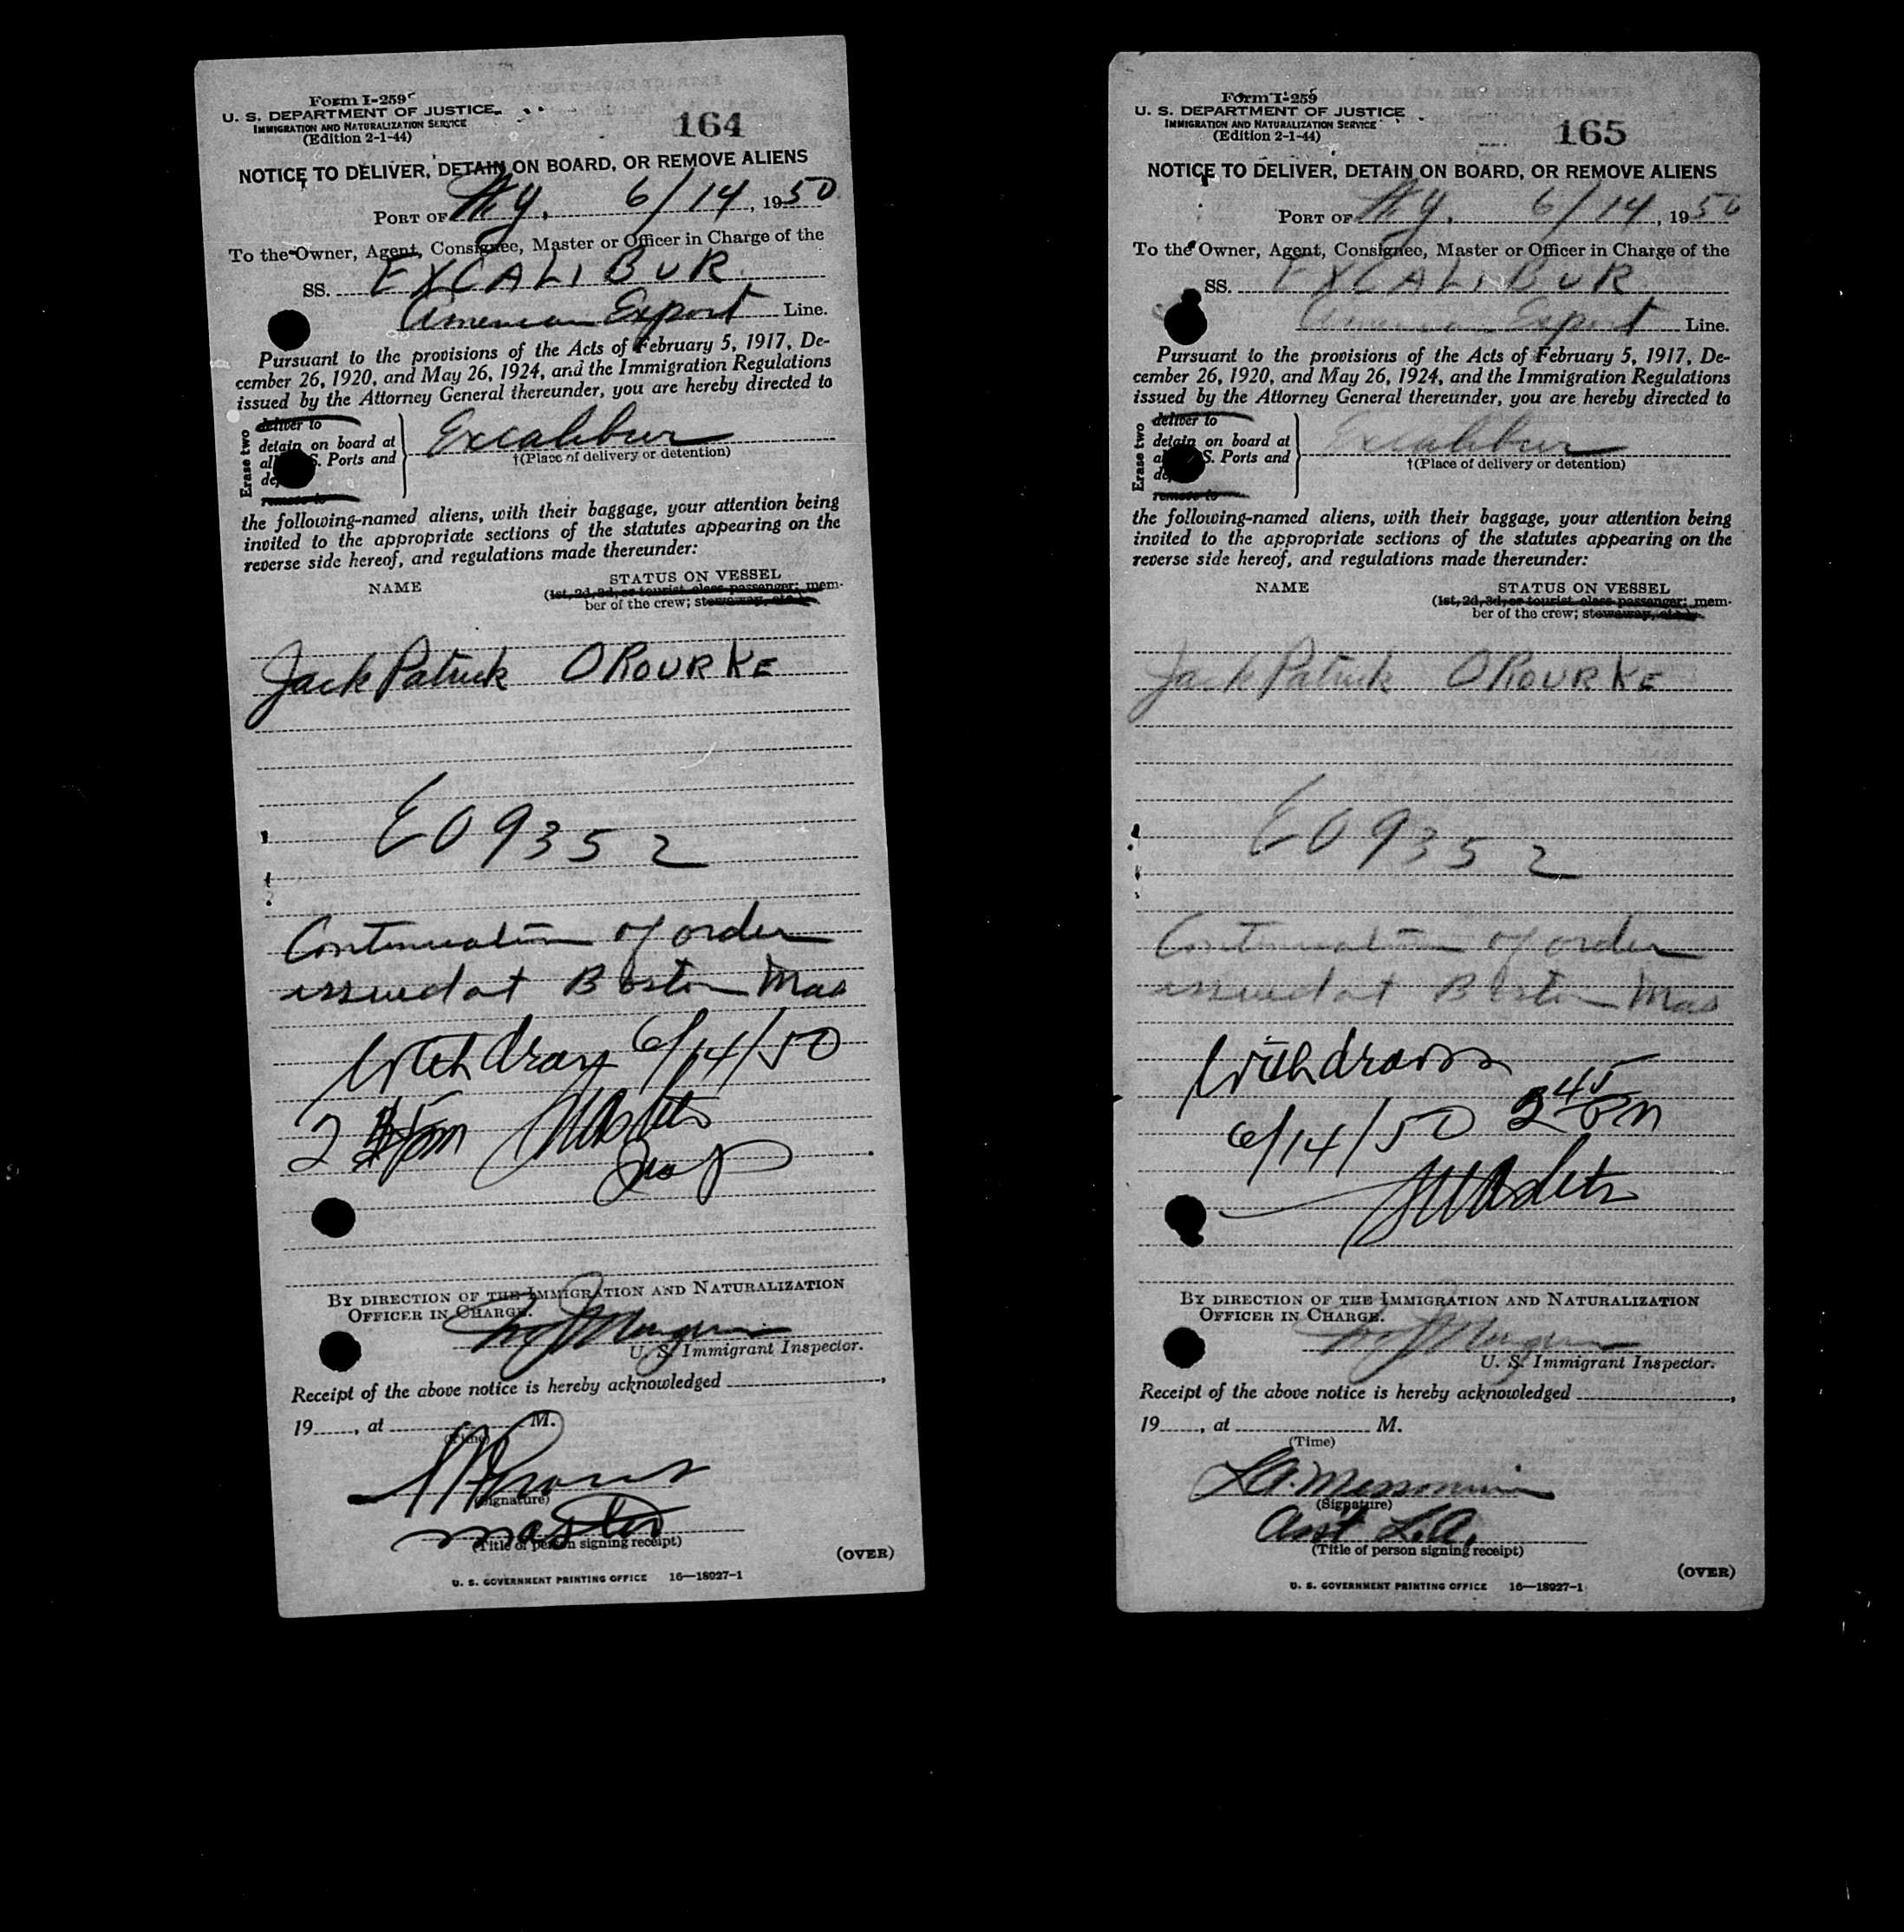 Form I-259
U. S. DEPARTMENT OF JUSTICE
IMMIGRATION AND NATURALIZATION SERVICE
(Edition 2-1-44)
164
NOTICE TO DELIVER, DETAIN ON BOARD, OR REMOVE ALIENS
PORT OF N.Y. 6/14, 1950
To the Owner, Agent, Consignee, Master or Officer in Charge of the
SS. EXCALIBUR
American Export Line.
Pursuant to the provisions of the Acts of February 5, 1917, De-
cember 26, 1920, and May 26, 1924, and the Immigration Regulations
issued by the Attorney General thereunder, you are hereby directed to
Erase two
deliver to
detain on board at
S. Ports and
remove to
Excalibur
†(Place of delivery or detention)
the following-named aliens, with their baggage, your attention being
invited to the appropriate sections of the statutes appearing on the
reverse side hereof, and regulations made thereunder:
NAME
STATUS ON VESSEL
(1st, 2d, 3d, or tourist class passenger; mem-
ber of the crew; stowaway, etc.)
Jack Patrick OROURKE
E09352
Continuation of order
issued at Boston Mas
Withdrawn 6/14/50
2 pm
BY DIRECTION OF THE IMMIGRATION AND NATURALIZATION
OFFICER IN CHARGE.
U. S. Immigrant Inspector.
Receipt of the above notice is hereby acknowledged ,
19 , at M.
(Time)
(Signature)
Master
(Title of person signing receipt)
(OVER)
U. S. GOVERNMENT PRINTING OFFICE 16—18927-1
Form I-259
U. S. DEPARTMENT OF JUSTICE
IMMIGRATION AND NATURALIZATION SERVICE
(Edition 2-1-44)
165
NOTICE TO DELIVER, DETAIN ON BOARD, OR REMOVE ALIENS
PORT OF N.Y. 6/14, 1950
To the Owner, Agent, Consignee, Master or Officer in Charge of the
SS. EXCALIBUR
American Export Line.
Pursuant to the provisions of the Acts of February 5, 1917, De-
cember 26, 1920, and May 26, 1924, and the Immigration Regulations
issued by the Attorney General thereunder, you are hereby directed to
Erase two
deliver to
detain on board at
S. Ports and
remove to
Excalibur
†(Place of delivery or detention)
the following-named aliens, with their baggage, your attention being
invited to the appropriate sections of the statutes appearing on the
reverse side hereof, and regulations made thereunder:
NAME
STATUS ON VESSEL
(1st, 2d, 3d, or tourist class passenger; mem-
ber of the crew; stowaway, etc.)
Jack Patrick OROURKE
E09352
Continuation of order
issued at Boston Mas
Withdrawn
6/14/50 2 45 PM
BY DIRECTION OF THE IMMIGRATION AND NATURALIZATION
OFFICER IN CHARGE.
U. S. Immigrant Inspector.
Receipt of the above notice is hereby acknowledged ,
19 , at M.
(Time)
(Signature)
Asst L.A.
(Title of person signing receipt)
(OVER)
U. S. GOVERNMENT PRINTING OFFICE 16—18927-1